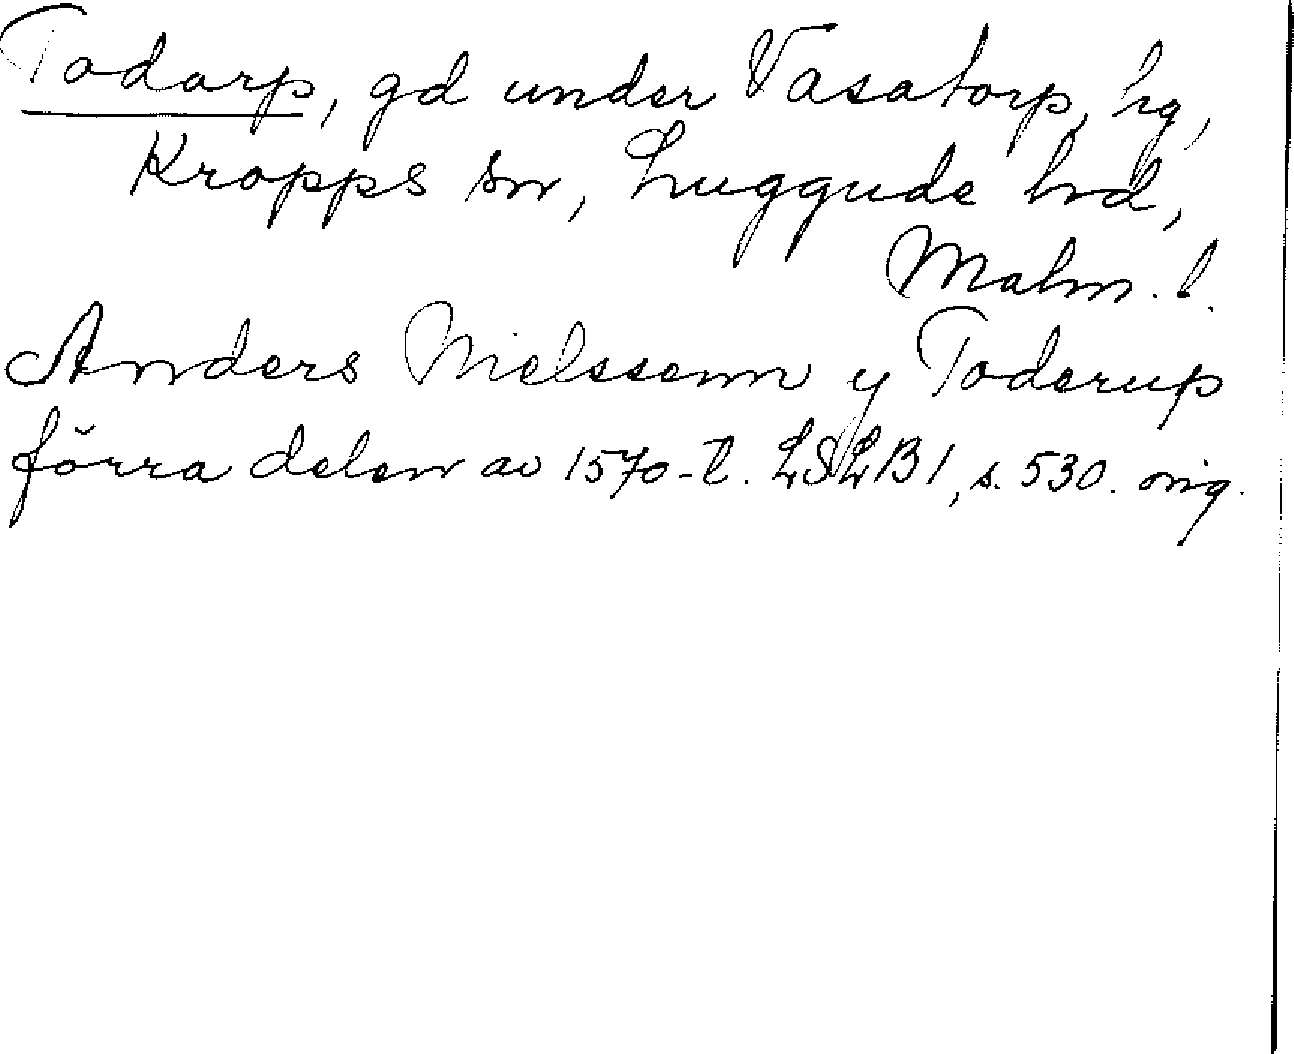 Todarp, gd under Vasatorp, hg,
Kropps sn, Luggude hd,
Malm. l.
Anders Nielssenn y Toderup
förra delen av 1570-t. LSLB1, s. 530. orig.